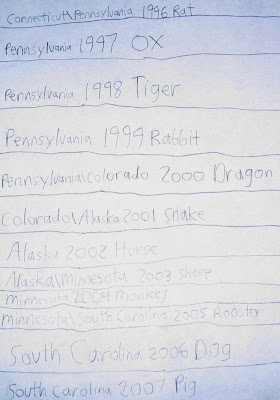 Connecticut\Pennsylvania 1996 Rat
Pennsylvania 1997 OX
Pennsylvania 1998 Tiger
Pennsylvania 1999 Rabbit
Pennsylvania\Colorado 2000 Dragon
Colorado\Alaska 2001 Snake
Alaska 2002 Horse
Alaska\Minnesota 2003 Sheep
Minnesota 2004 Monkey
Minnesota\South Carolina 2005 Rooster
South Carolina 2006 Dog
South Carolina 2007 Pig